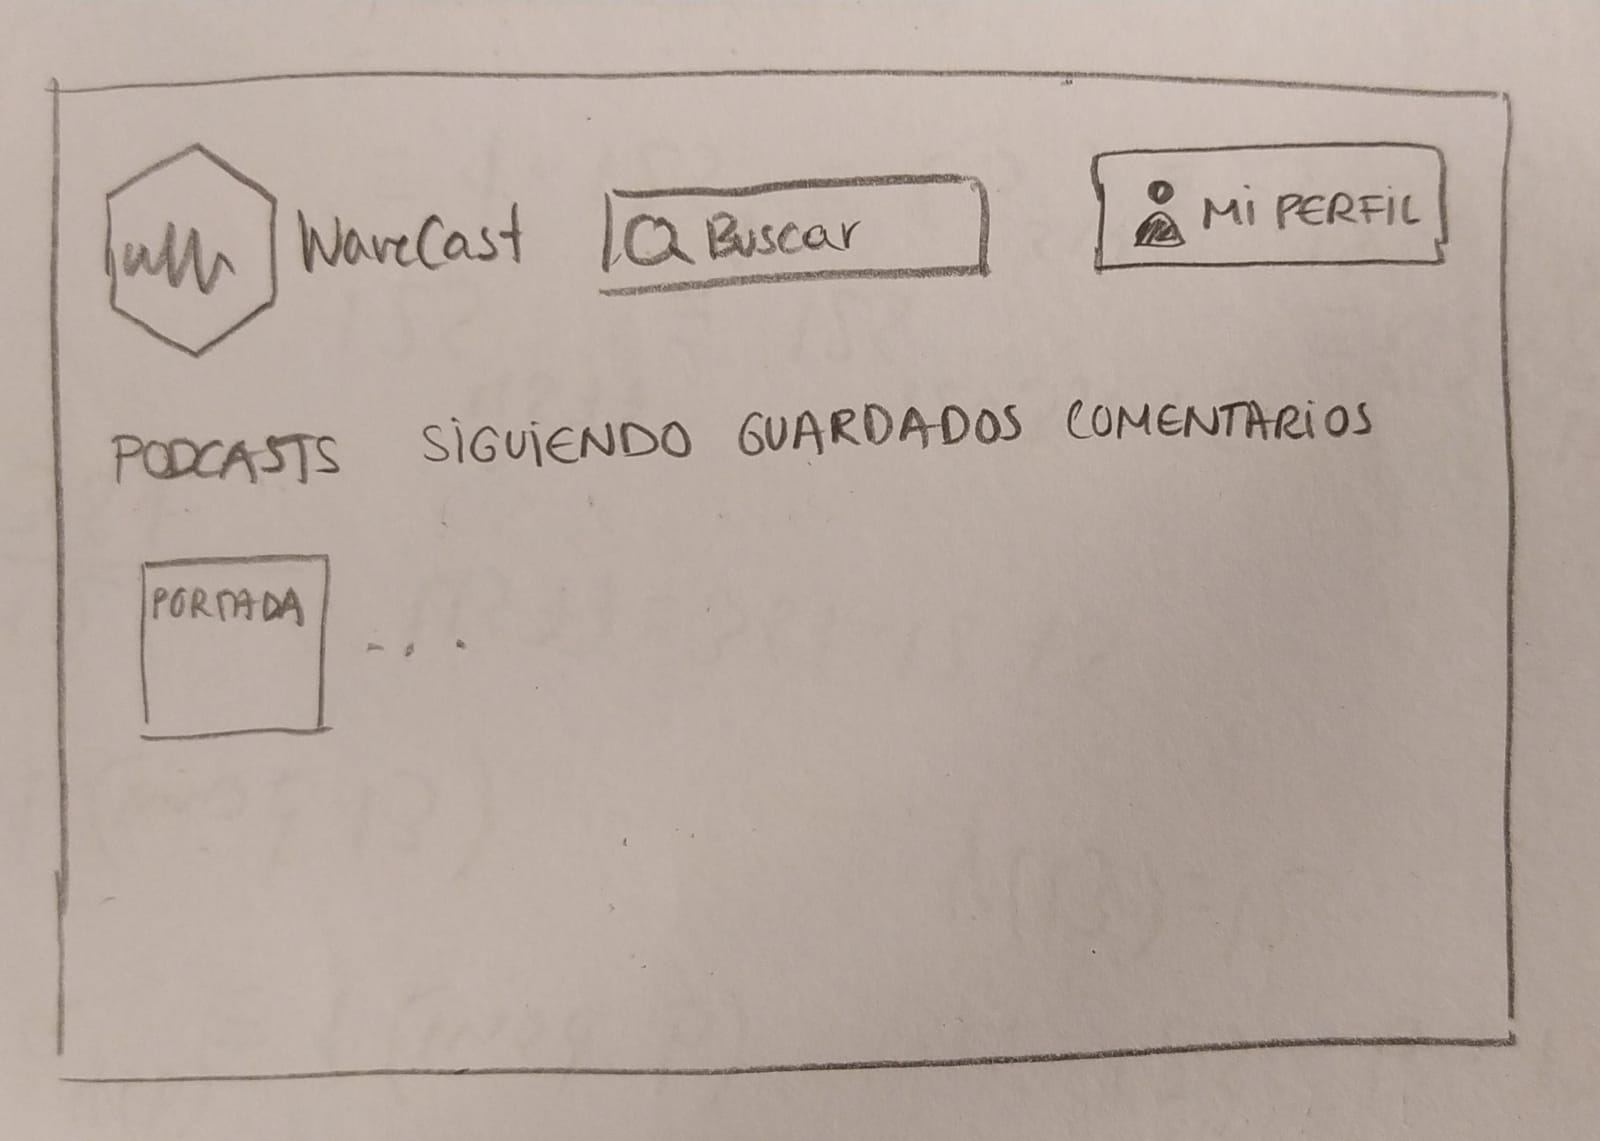 WaveCast Buscar MI PERFIL
PODCASTS SIGUIENDO GUARDADOS COMENTARIOS
PORTADA ...